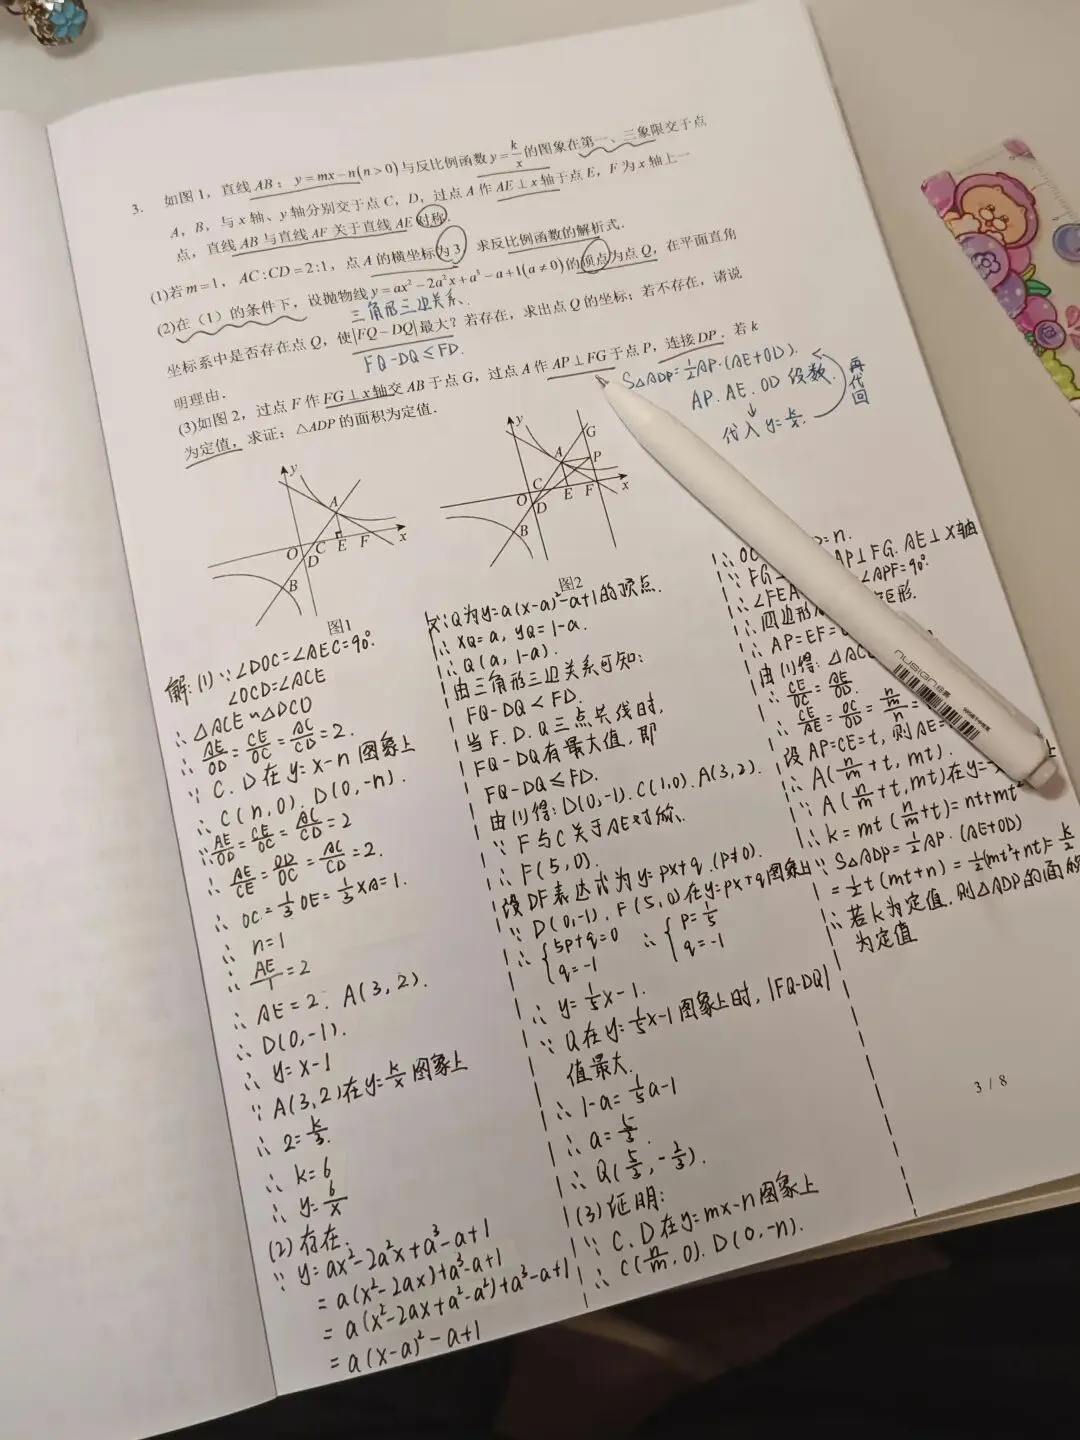 3. 如图1，直线AB：y=mx-n(n>0)与反比例函数y=k/x的图象在第一、三象限交于点
A，B，与x轴、y轴分别交于点C，D，过点A作AE⊥x轴于点E，F为x轴上一
点，直线AB与直线AF关于直线AE对称.
(1)若m=1，AC:CD=2:1，点A的横坐标为3，求反比例函数的解析式.
(2)在（1）的条件下，设抛物线y=ax²-2a²x+a³-a+1(a≠0)的顶点为点Q，在平面直角
三角形三边关系.
坐标系中是否存在点Q，使|FQ-DQ|最大？若存在，求出点Q的坐标；若不存在，请说
FQ-DQ≤FD.
明理由.
(3)如图2，过点F作FG⊥x轴交AB于点G，过点A作AP⊥FG于点P，连接DP. 若k
为定值，求证：△ADP的面积为定值.
S△ADP=½AP·(AE+OD).
AP.AE.OD 设数.
↓
代入y=k/x.
再代回
y
A
O
C
E
F
x
D
B
图1
y
G
A
P
C
O
D
E
F
x
B
图2
解:(1)∵∠DOC=∠AEC=90°.
∠OCD=∠ACE
∴△ACE∽△DCO
∴AE/OD=CE/OC=AC/CD=2.
∵C.D在y=x-n图象上
∴C(n,0).D(0,-n).
∵AE/OD=CE/OC=AC/CD=2
∴AE/CE=OD/OC=AC/CD=2.
∴OC=⅓OE=⅓×A=1.
∴n=1
∴AE/1=2
∴AE=2.A(3,2).
∴D(0,-1).
∴y=x-1
∵A(3,2)在y=k/x图象上
∴2=k/3.
∴k=6
∴y=6/x
(2)存在.
∵y=ax²-2a²x+a³-a+1
=a(x²-2ax)+a³-a+1
=a(x²-2ax+a²-a²)+a³-a+1
=a(x-a)²-a+1
又∵Q为y=a(x-a)²-a+1的顶点.
∴xQ=a,yQ=1-a.
∴Q(a,1-a).
由三角形三边关系可知:
FQ-DQ<FD.
当F.D.Q三点共线时,
FQ-DQ有最大值,即
FQ-DQ≤FD.
由(1)得:D(0,-1).C(1,0).A(3,2).
∵F与C关于AE对称.
∴F(5,0).
设DF表达式为y=px+q.(p≠0).
∵D(0,-1).F(5,0)在y=px+q图象上
∴{5p+q=0 ∴{p=1/5
q=-1 q=-1
∴y=1/5x-1.
∵Q在y=1/5x-1图象上时,|FQ-DQ|
值最大.
∴1-a=1/5a-1
∴a=5/3.
∴Q(5/3,-2/3).
(3)证明:
∵C.D在y=mx-n图象上
∴C(n/m,0).D(0,-n).
∴OC
=n.
∵FG
AP⊥FG.AE⊥x轴
∴∠FEA
∠APF=90°.
∴四边形
矩形.
∴AP=EF=
由(1)得:△AC
∴CE/OC=AE/OD.
∴CE/AE=OC/OD=
设AP=CE=t,则AE=
∴A(n/m+t,mt).
∵A(n/m+t,mt)在y=
上
∴k=mt(n/m+t)=nt+mt²
∵S△ADP=½AP·(AE+OD)
=½t(mt+n)=½(mt²+nt)=k/2
∴若k为定值.则△ADP的面
为定值
3 / 8